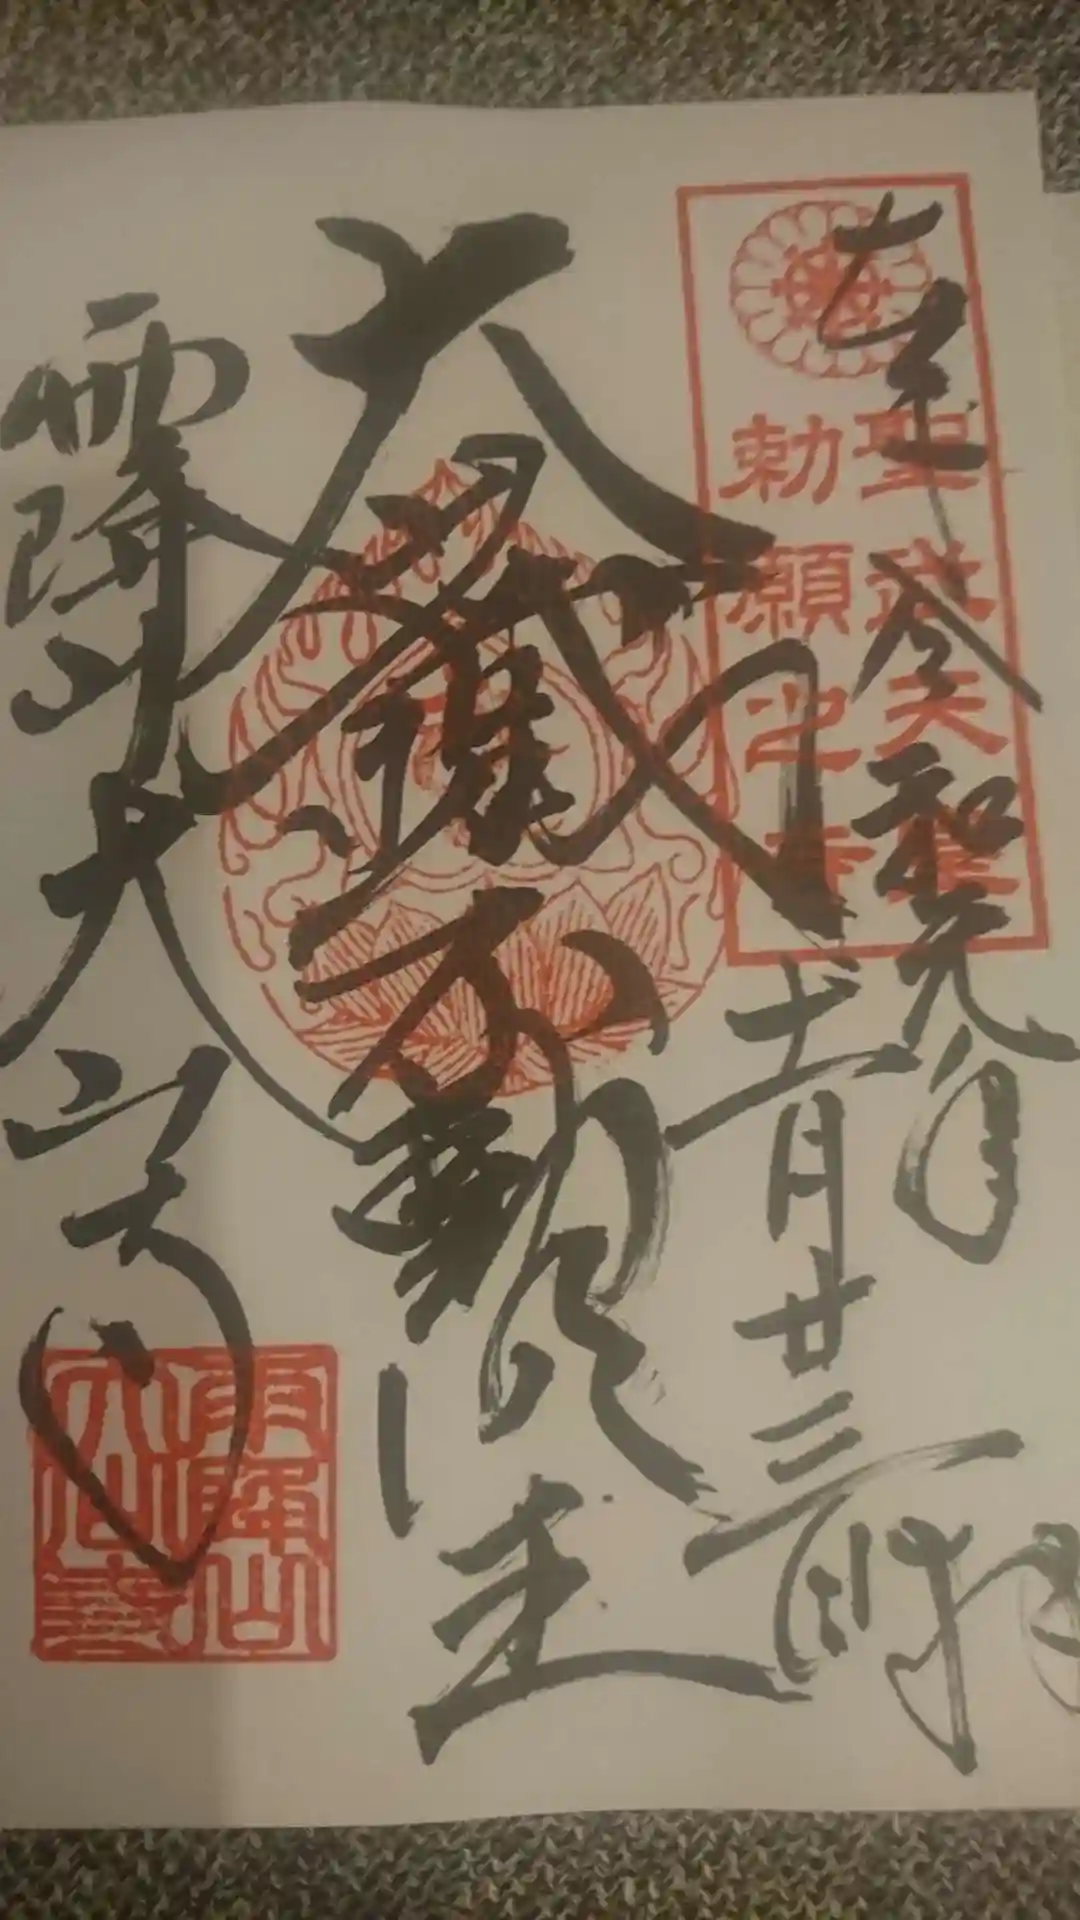 聖武天皇
勅願之寺
令和元年
十一月廿三日
拝
大
不動明王
雨降山大山寺
雨降山
大山寺